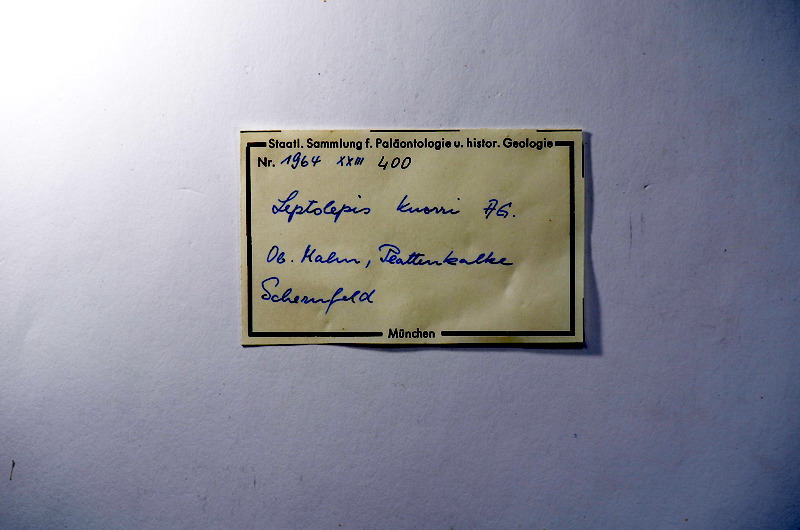 Staatl. Sammlung f. Paläontologie u. histor. Geologie
Nr. 1964 XXIII 400
Leptolepis knorri AG.
Ob. Malm, Plattenkalke
Schernfeld
München